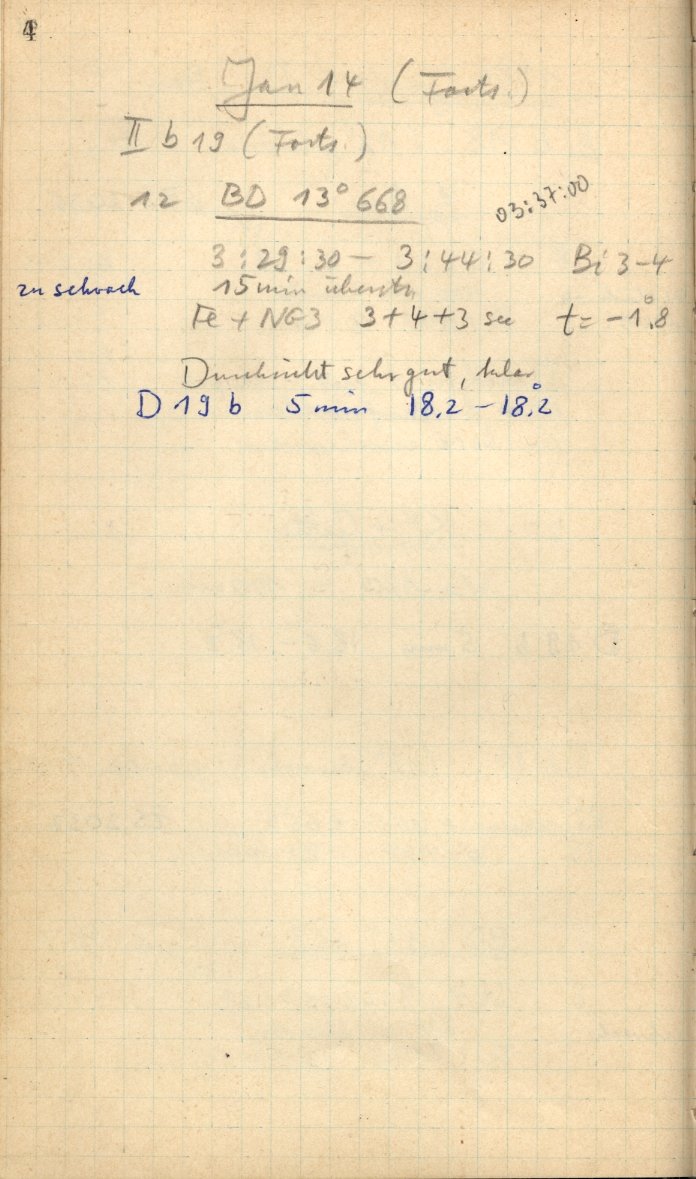 4
Jan 14 (Forts.)
II b 19 (Forts.)
12 BD 13° 668
03:37:00
3:29:30 – 3:44:30 Bi 3–4
zu schwach 15 min überstr.
Fe + NG3 3+4+3 sec t = –1°.8
Durchsicht sehr gut, klar
D 19 b 5 min 18.2 – 18°.2